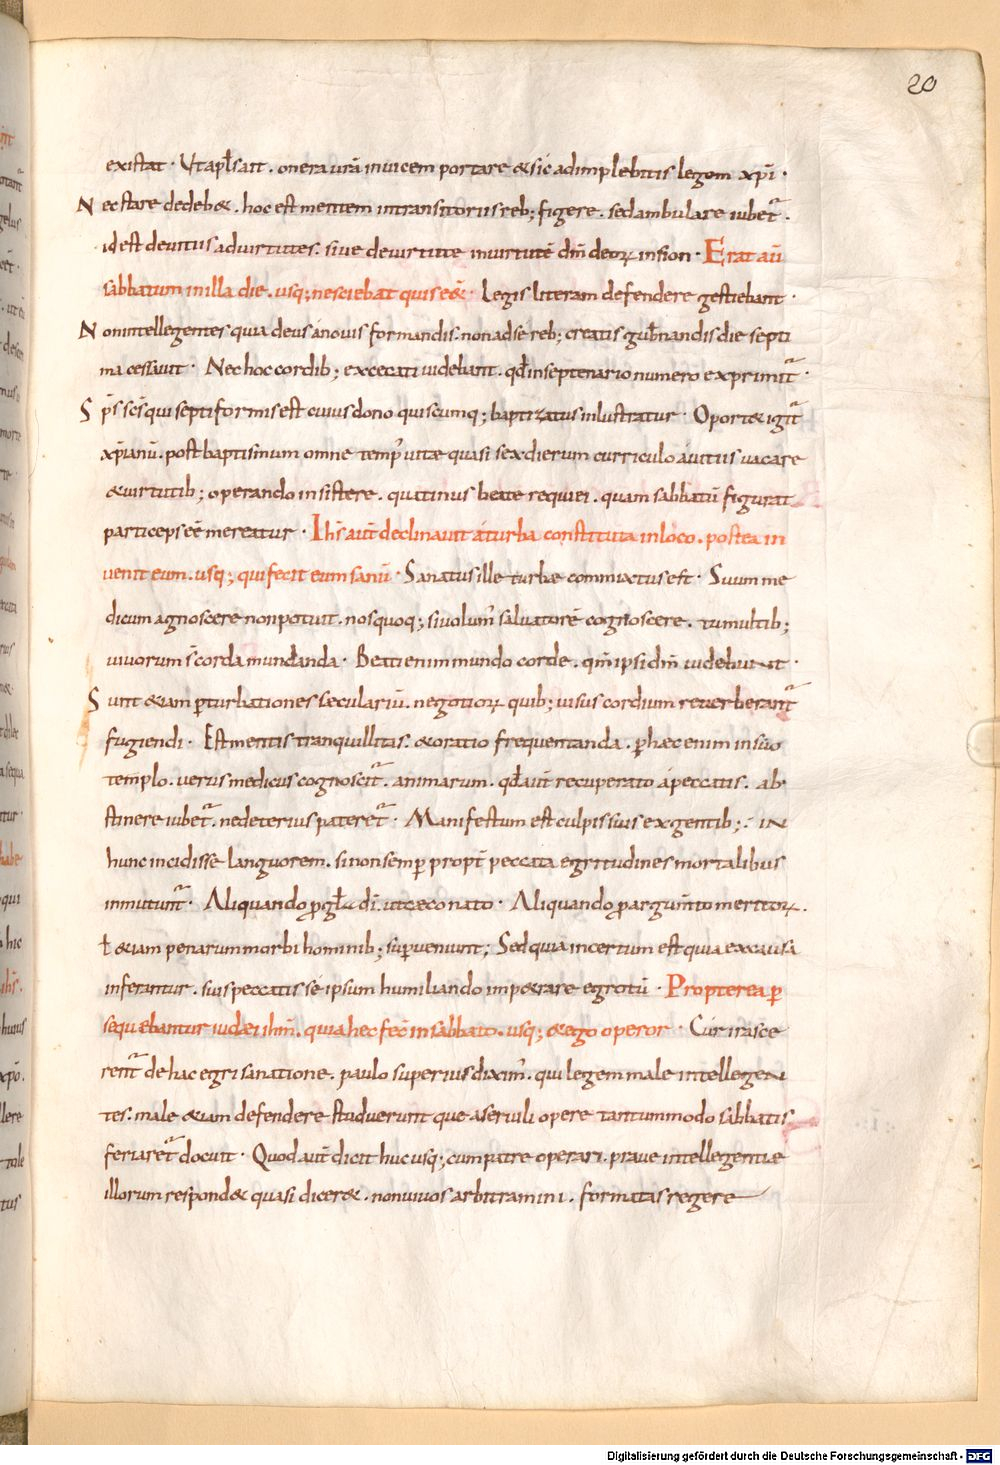 20
existat · Ut apl̃s ait . onera urã inuicem portare & sic adimplebitis legem xp̃i ·
Nec stare ded eb& . hoc est mentem in transitoriis reb; figere . sed ambulare iubet̃ .
id est de uitiis ad uirtutes . siue de uirtute in uirtutẽ dm̃ deoꝝ in sion · Erat aũ
sabbatum in illa die . usq; nesciebat quis e&̃ · Legis literam defendere gestiebant ·
Non intellegentes quia deus a nouis formandis . non ad se reb; creatis gub̃nandis die septi
ma cessauit · Nec hoc cordib; excecati uidebant . qđ in septenario numero exprimit̃ ·
Sp̃s sc̃s qui septiformis est cuius dono quiscumq; baptizatus inlustratur · Oport& igit̃
xp̃ianũ . post baptismum omne temp' uitae quasi sex dierum curriculo a uitiis uacare
& uirtutib; operando insistere . quatinus beate requiei . quam sabbatũ figurat
particeps eẽ mereatur · Ih̃s aut̃ declinauit a turba constituta in loco . postea in
uenit eum . usq; qui fecit eum sanũ · Sanatus ille turbae commixtus est · Suum me
dicum agnoscere non potuit . nos quoq; si uolum' saluatorẽ cognoscere . tumultib;
uiuorum s̃ corda mundanda · Beati enim mundo corde . qm̃ ipsi dm̃ uidebunt ·
Sunt &iam p̱turbationes seculariũ . negotioꝝ quib; uisus cordium reuerberant̃
fugiendi · Est mentis tranquillitas . & oratio frequentanda . p̱ haec enim in suo
templo . uerus medicus cognoscit̃ . animarum . qđ aut̃ recuperato a peccatis . ab
stinere iubet̃ . ne deterius pateret̃ · Manifestum est culpis suis exigentib; : in
hunc incidisse languorem . si non semp̱ propt̃ peccata egritudines mortalibus
inmutunt̃ · Aliquando p̱ gl̃a di . ut caeco nato · Aliquando p̱ argum̃to meritoꝝ .
ł &iam penarum morbi hominib; sup̱ueniunt ; Sed quia incertum est qua ex causa
inferantur . suis peccatis se ipsum humiliando imp&rare egrotũ · Propterea p̱
sequebantur iudaei ihm̃ . quia hec fec̃ in sabbato . usq; & ego operor · Cur irasce
rent̃ de hac egri sanatione . paulo superius dixim' . qui legem male intellegen
tes . male &iam defendere studuerunt que a seruili opere tantummodo sabbatis
feriaret̃ docuit · Quod aut̃ dicit huc usq; cum patre operari . praue intellegentiae
illorum respond& quasi dicer& . non uiuos arbitramini . formatas regere
Digitalisierung gefördert durch die Deutsche Forschungsgemeinschaft - DFG